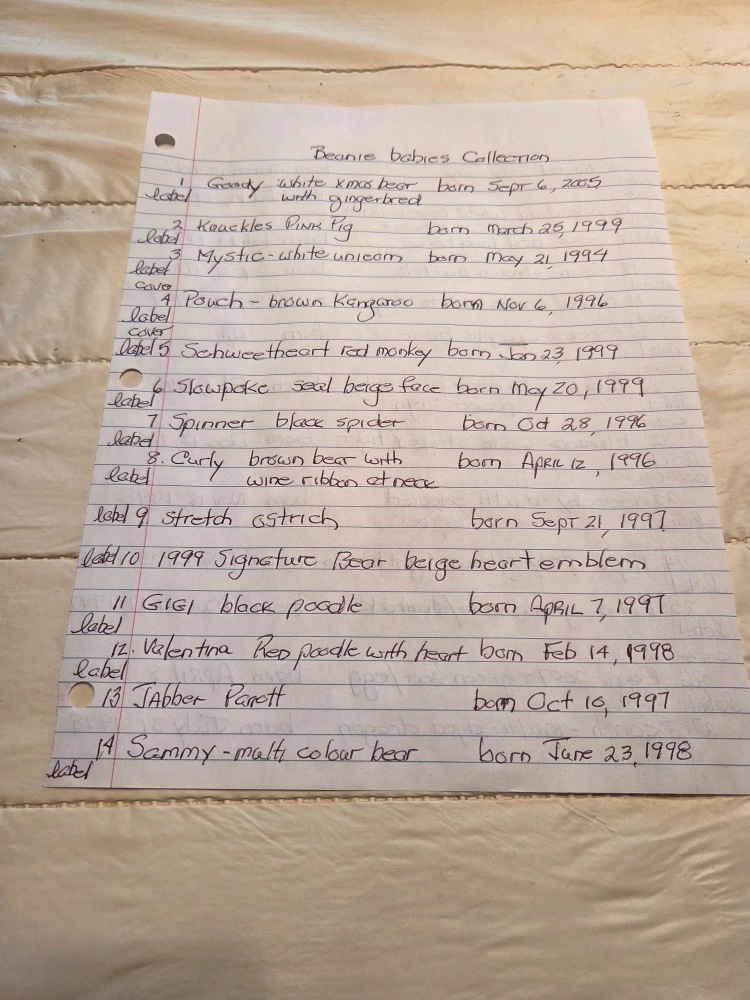 Beanie babies Collection
1 Goody white xmas bear born Sept 6, 2005
label with gingerbred
2 Knuckles PINK Pig born March 25, 1999
label
3 Mystic - white unicorn born May 21, 1994
label
cover
4 Pouch - brown Kangaroo born Nov 6, 1996
label
cover
label 5 Schweetheart red monkey born Jan 23, 1999
6 Slowpoke seal beige face born May 20, 1999
label
7 Spinner black spider born Oct 28, 1996
label
8. Curly brown bear with born APRIL 12, 1996
label wine ribbon at neck
label 9 Stretch ostrich born Sept 21, 1997
label 10 1999 Signature Bear beige heart emblem
11 GIGI black poodle born APRIL 7, 1997
label
12. Valentina RED poodle with heart born Feb 14, 1998
label
13 JAbber Parott born Oct 10, 1997
14 Sammy - multi colour bear born June 23, 1998
label